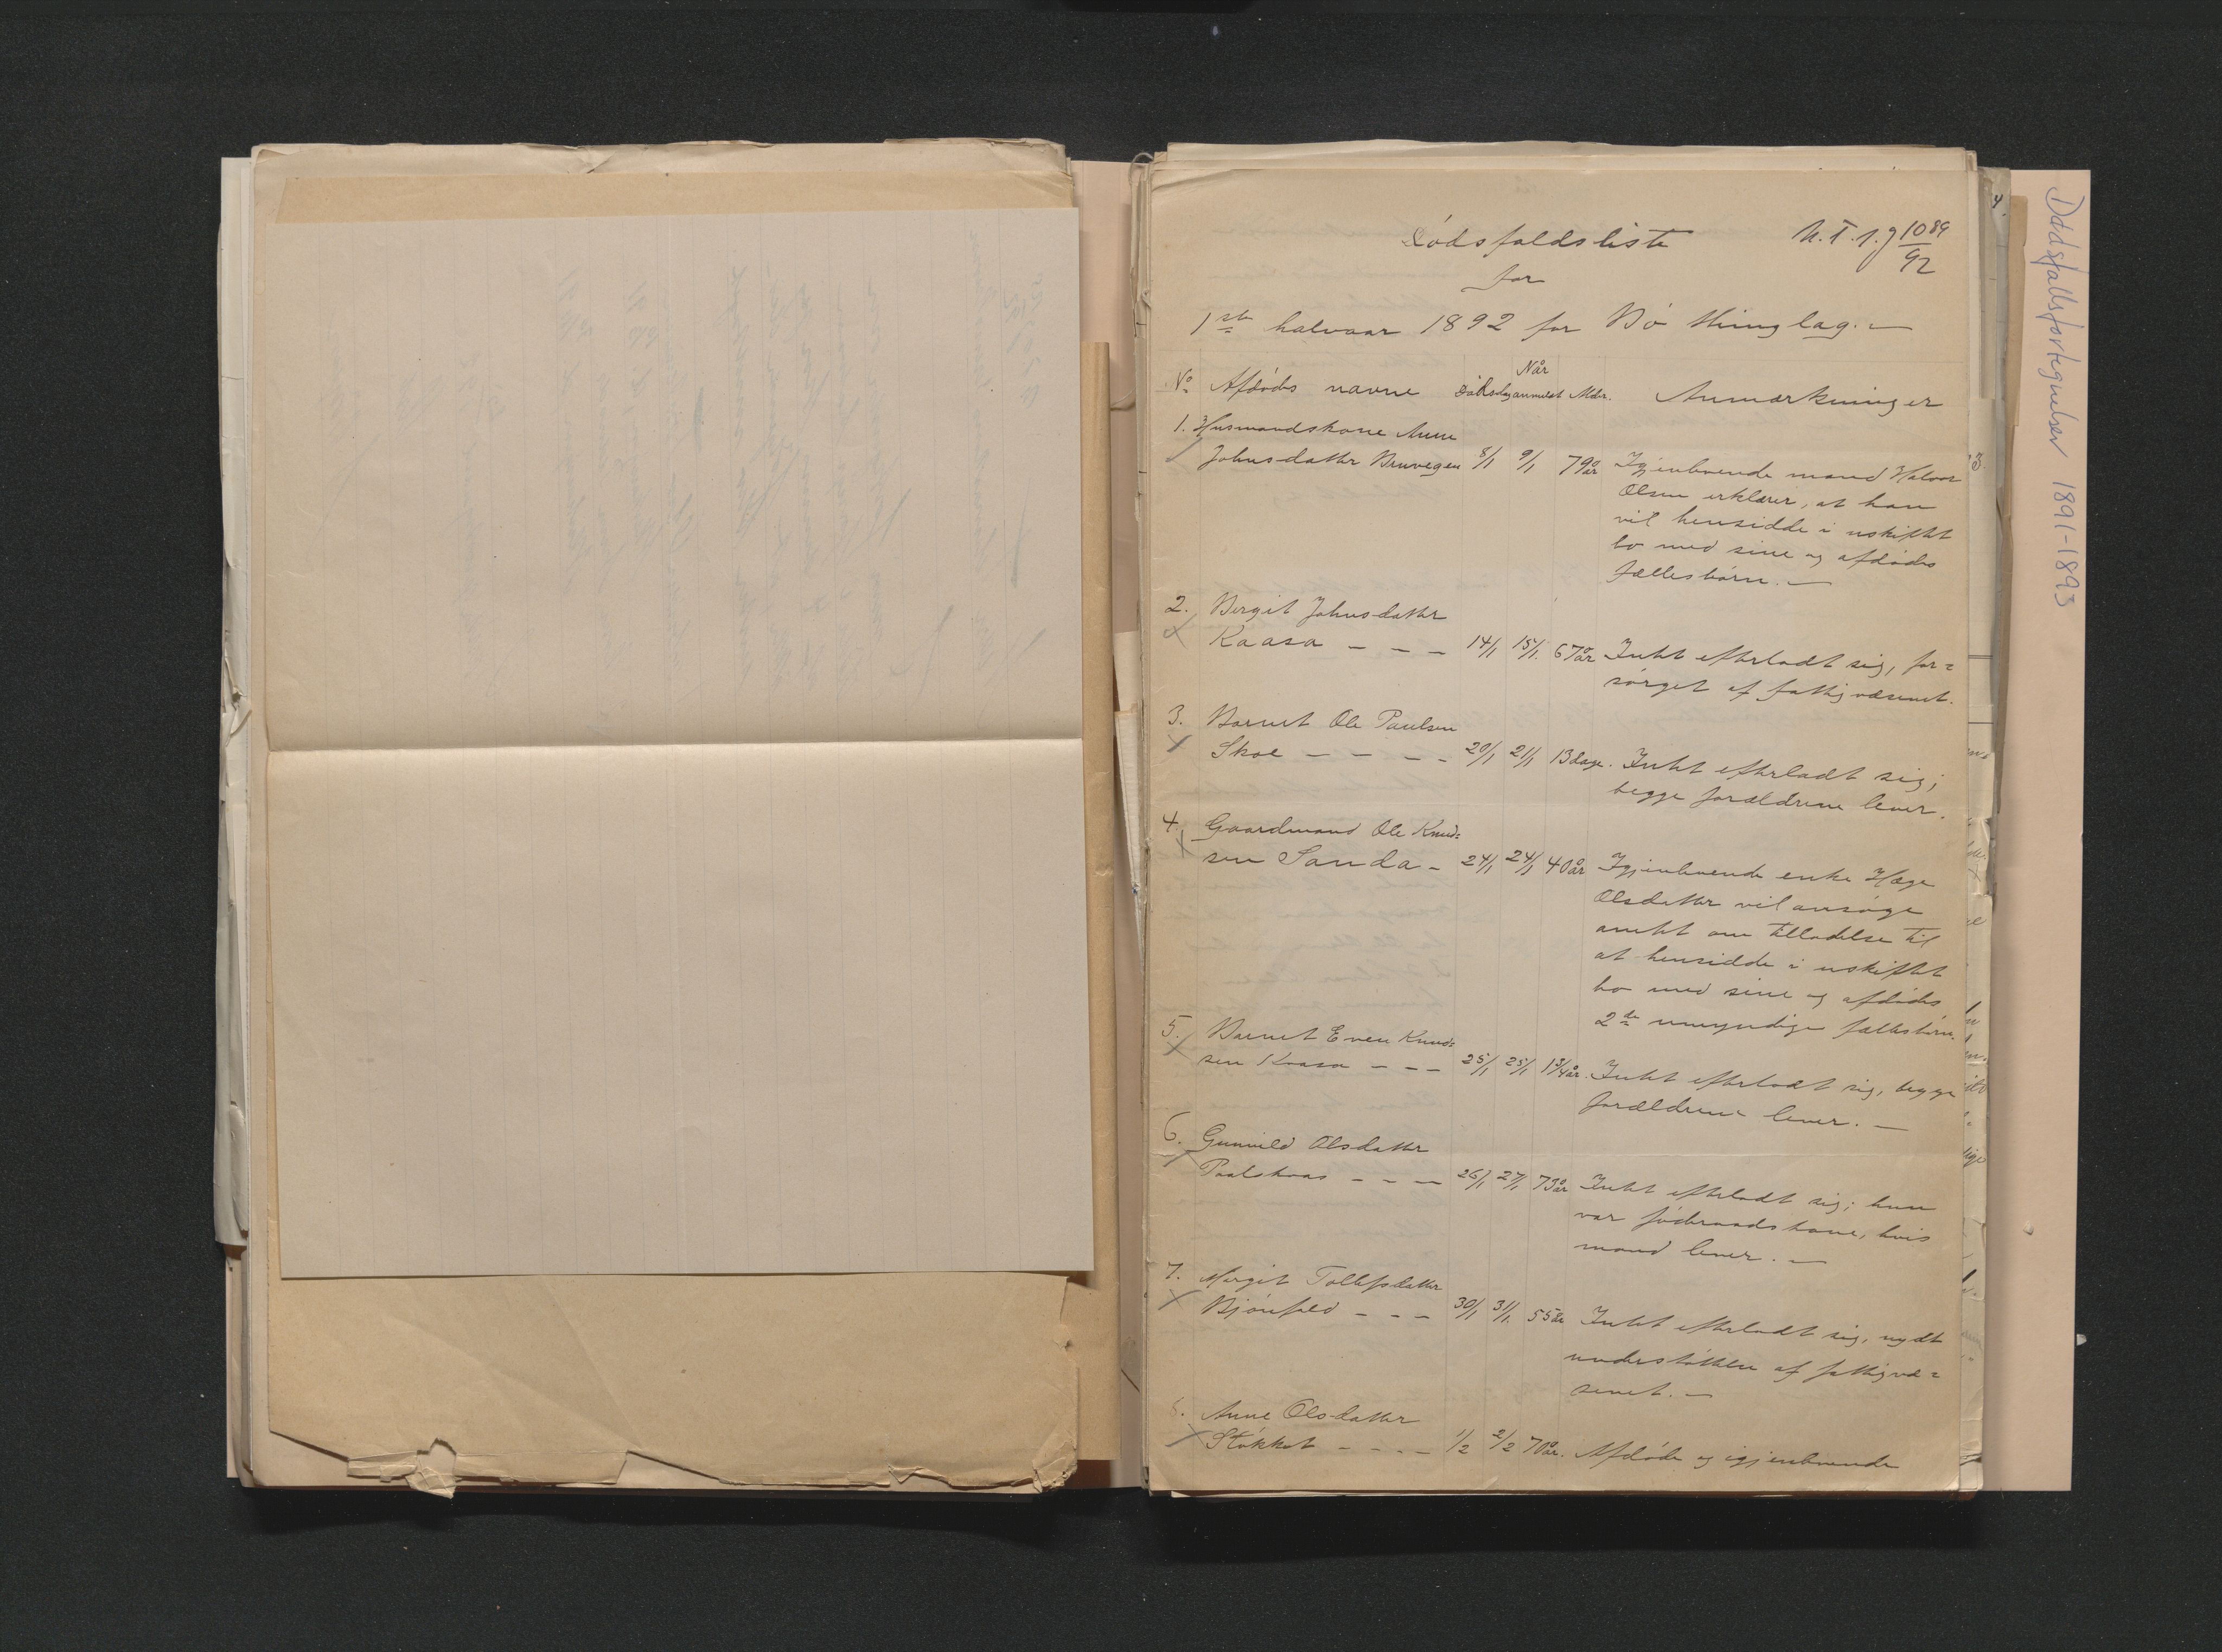 Dødsfaldsliste
N.T.s.J 1089/92
for
1ste halvaar 1892 for Bö thinglag. —
No Afdødes navne Dødsdag Når anmeldt Alder. Anmærkninger
1. Husmandskone Anne
Johnsdatter Bruvegen 8/1 9/1 79 år Igjenlevende mand Halvor
Olsen erklærer, at han
vil hensidde i uskiftet
bo med sine og afdødes
fællesbörn. —
2. Bergit Johnsdatter
Kaasa – – – 14/1 15/1. 67 år Intet efterladt sig, for=
sörget af fattigvæsenet.
3. Barnet Ole Paulsen
Skoe – – – – 20/1 21/1 13 dage. Intet efterladt sig;
begge forældrene lever.
4. Gaardmand Ole Knud=
sen Sanda – 24/1 24/1 40 år Igjenlevende enke Hæge
Olsdatter vil ansøge
amtet om tilladelse til
at hensidde i uskiftet
bo med sine og afdødes
2de umyndige fællesbörn.
5. Barnet Even Knud=
sen Kaasa – – – 25/1 25/1 1 3/4 år. Intet efterladt sig, begge
forældrene lever. —
6. Gunnild Olsdatter
Paalskaas – – – 26/1 27/1 73 år Intet efterladt sig; hun
var föderaadskone, hvis
mand lever. —
7. Margit Tollefsdatter
Björnfeld – – – 30/1 31/1. 55 år Intet efterladt sig, nydt
understöttelse af fattigvæ=
senet. —
8. Anne Olsdatter
Stökket – – – – 1/2 2/2 70 år. Afdöde og igjenlevende
Dødsfallsfortegnelser 1891-1893